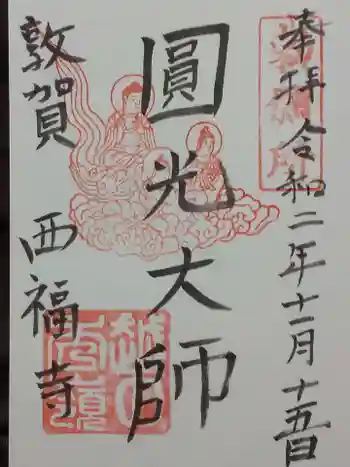 奉拝 令和二年十一月十五日
圓光大師
敦賀 西福寺